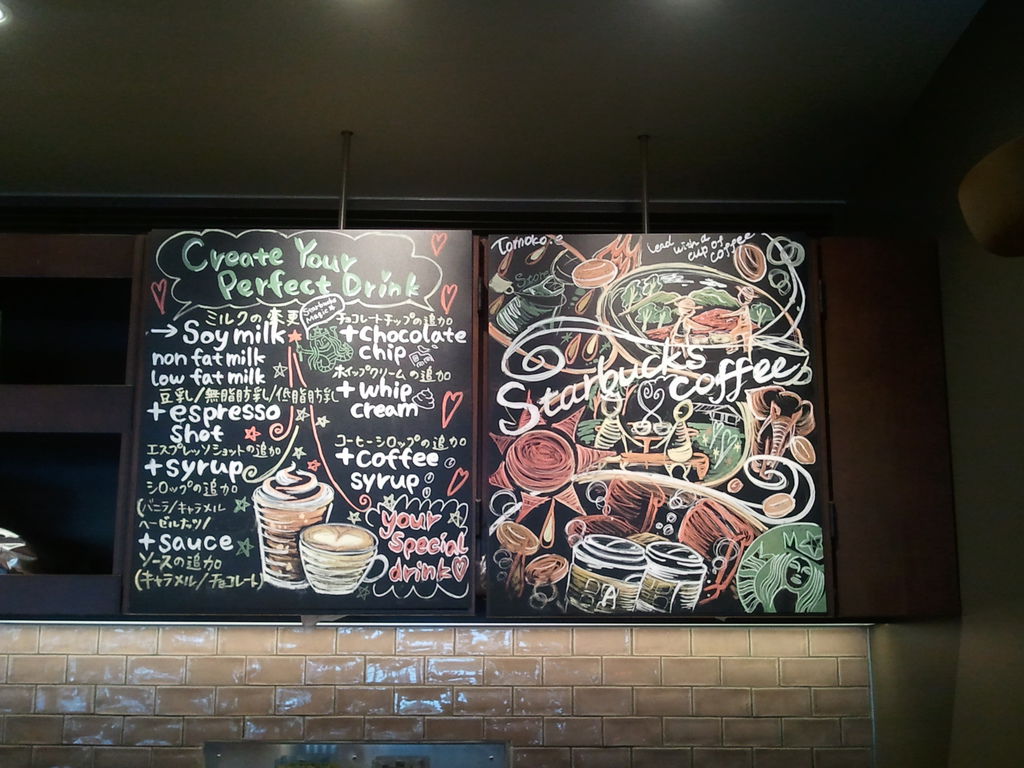 Create Your
Perfect Drink
Starbucks
Magic
ミルクの変更
→ Soy milk
non fat milk
low fat milk
豆乳/無脂肪乳/低脂肪乳
+espresso
shot
エスプレッソショットの追加
+syrup
シロップの追加
(バニラ/キャラメル
ヘーゼルナッツ/
+sauce
ソースの追加
(キャラメル/チョコレート)
チョコレートチップの追加
+chocolate
chip
ホイップクリームの追加
+whip
cream
コーヒーシロップの追加
+coffee
syrup
your
special
drink
Lead with a
cup of
coffee
Store
Starbucks
coffee